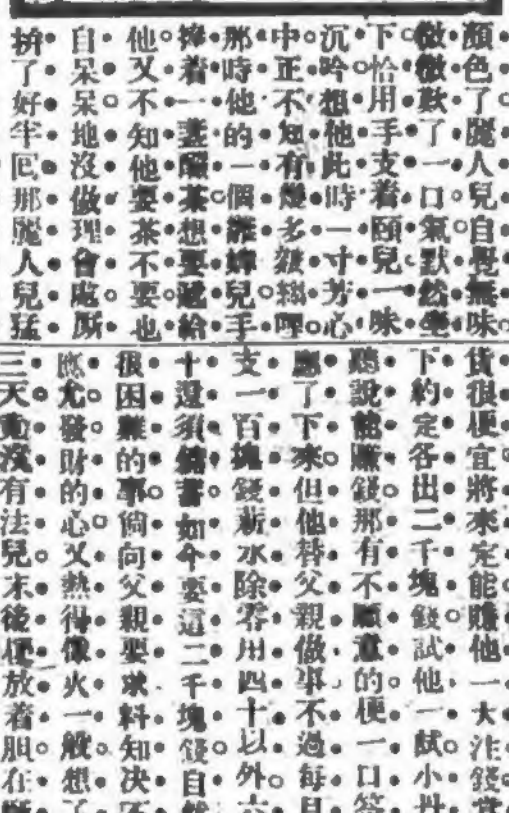 顏色了麗人兒自覺無味
微微歎了一口氣默然坐
下恰用手支着頤兒一味
沉吟想他此時一寸芳心
中正不知有幾多縐哩
那時他的一個雛婢兒手
捧着一盞茶想要遞給
他又不知他要茶不要也
自呆呆地沒做理會處厮
拚了好半囘那麗人兒猛
貨很便宜將來定能賺他一大注錢當
下約定各出二千塊錢試他一試小丹
聽說能賺錢那有不願意的便一口答
應了下來但他替父親做事不過每月
支一百塊錢薪水除零用四十以外六
十還須如今要這二千塊錢自然
很困難的事倘向父親要求料知决不
應尤發財的心又熱得像火一般想了
三天動沒有法兒末後便放着胆在